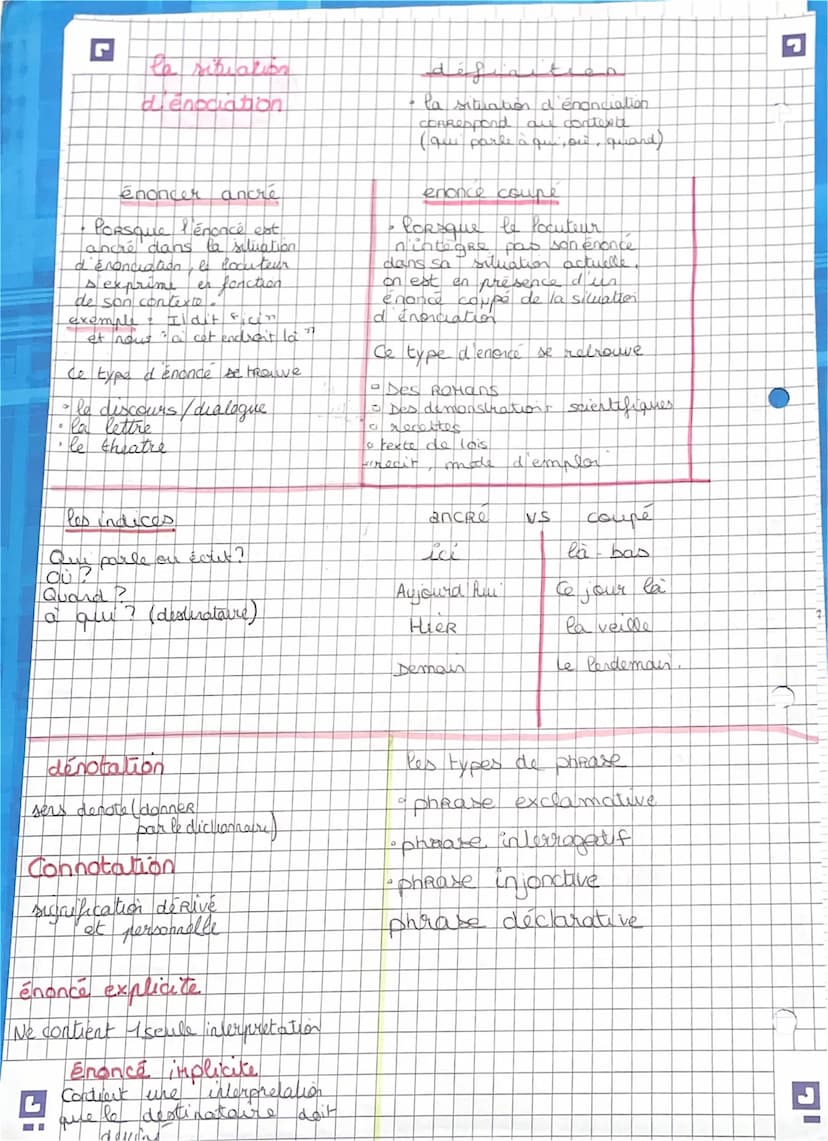 la situation
d'énociation
définition
• la situation d'énonciation
correspond au contexte
(qui parle à qui, où, quand)
énoncer ancré
• lorsque l'énoncé est
ancré dans la situation
d'énonciation, le locuteur
s'exprime en fonction
de son contexte.
exemple : Il dit "ici"
et nous "à cet endroit là"
ce type d'énoncé se trouve
• le discours/dialogue
• la lettre
• le theatre
enoncé coupé
• lorsque le locuteur
n'intègre pas son énoncé
dans sa situation actuelle,
on est en présence d'un
énoncé coupé de la situation
d'énonciation
Ce type d'enoncé se retrouve
• Des ROMANS
• Des démonstrations scientifiques
• recettes
• texte de lois
récit, mode d'emploi
les indices
Qui parle ou écrit?
Où ?
Quand ?
à qui ? (destinataire)
ancré vs coupé
ici là-bas
Aujourd'hui Ce jour là
Hier la veille
Demain Le lendemain.
dénotation
sens dénoté (donner
par le dictionnaire)
Connotation
signification dérivé
et personnelle
énoncé explicite
Ne contient 1 seule interprétation
Énoncé implicite
Contient une interprétation
que le destinataire doit
les types de phrase
• phrase exclamative
• phrase interrogatif
• phrase injonctive
phrase déclarative